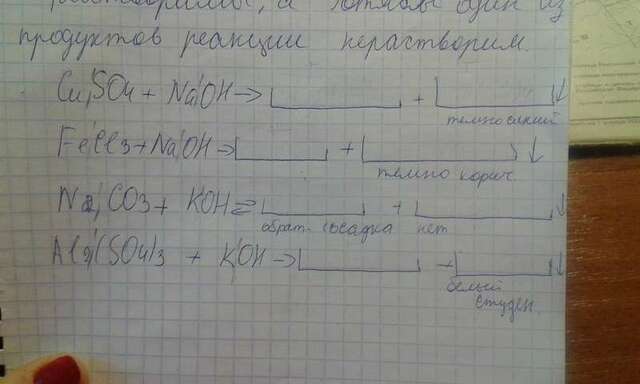 один из
продуктов реакции нерастворим.
Cu,SO4 + Na'OH → + ↓
темно синий
Fe'Cl3+Na'OH → + ↓
темно корич.
Na2'CO3 + KOH ⇄ + ↓
обрат. осадка нет
Al2'(SO4)3 + K'OH → + ↓
белый
студен.